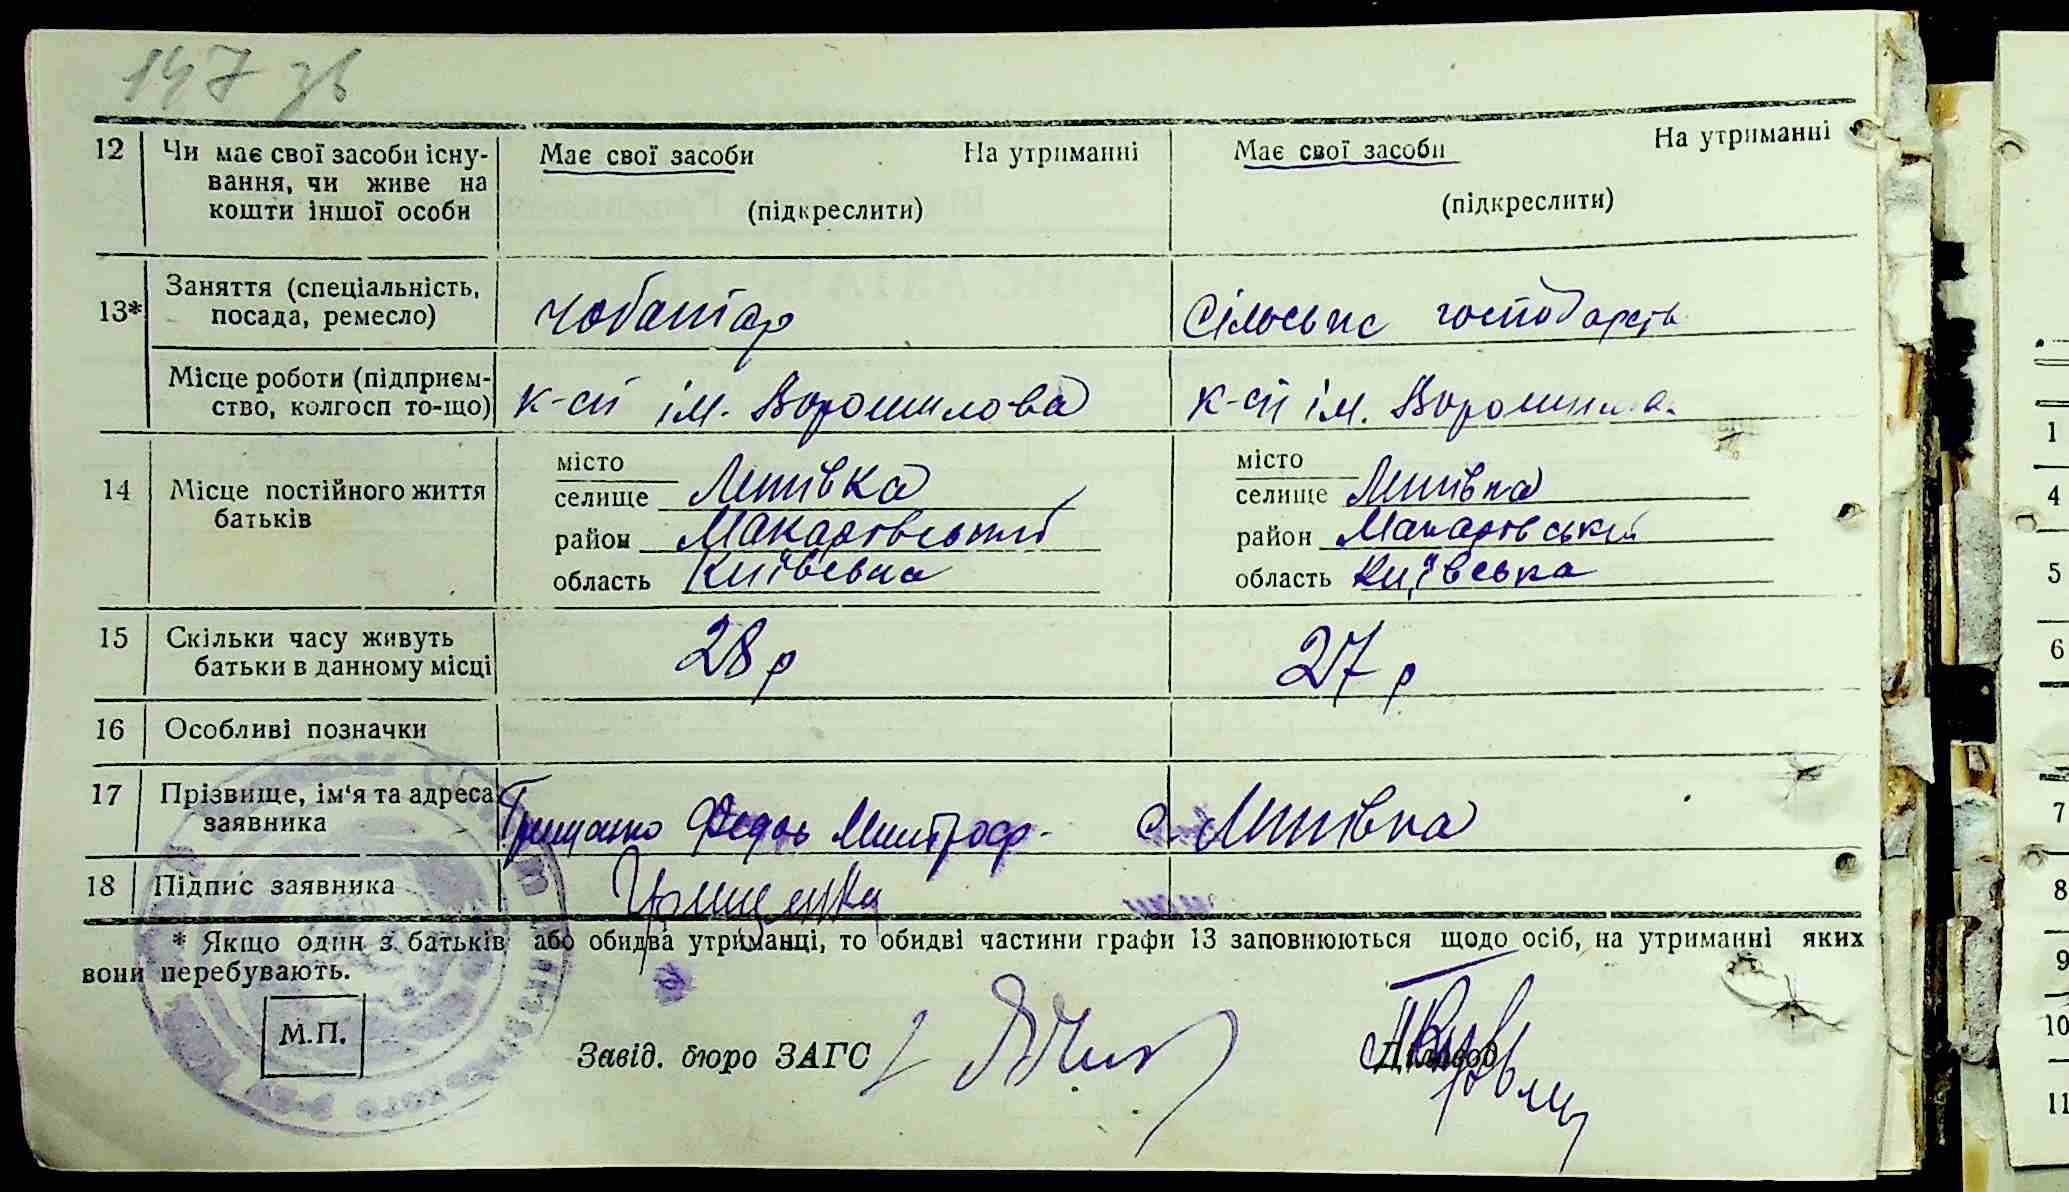 147 зв
12 Чи має свої засоби існу- Має свої засоби На утриманні Має свої засоби На утриманні
вання, чи живе на
кошти іншої особи (підкреслити) (підкреслити)
13* Заняття (спеціальність, посада, ремесло) чоботар Сільське господарств
Місце роботи (підприєм-
ство, колгосп то-що) к-сп ім. Ворошилова к-сп ім. Ворошилова
14 Місце постійного життя
батьків
місто місто
селище Липівка селище Липівка
район Макарівський район Макарівський
область Київська область Київська
15 Скільки часу живуть
батьки в данному місці 28 р 27 р
16 Особливі позначки
17 Прізвище, ім'я та адреса
заявника Грищенко Федось Митроф. с. Липівка
18 Підпис заявника Грищенко
* Якщо один з батьків або обидва утриманці, то обидві частини графи 13 заповнюються щодо осіб, на утриманні яких
вони перебувають.
М.П.
Завід. бюро ЗАГС Діловод
1
4
5
6
7
8
9
10
11